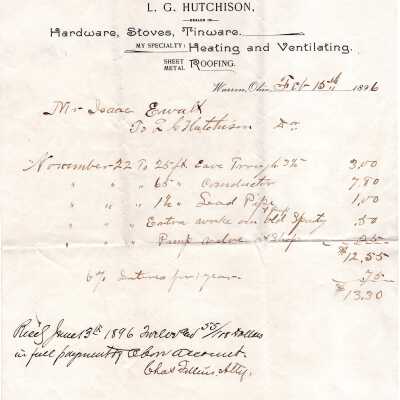 L. G. HUTCHISON,
DEALER IN
Hardware, Stoves, Tinware.
MY SPECIALTY: Heating and Ventilating.
SHEET METAL ROOFING.
Warren, Ohio, Feb 15th 1896
Mr Isaac Ewalt
To L G Hutchison Dr
November 22 To 25 ft Eave Trough 3.00
" " " 65 " Conductor 7.80
" " " Lead Pipe 1.00
" " " Extra work on .50
" " " Pump .25
$12.55
6% Interest for 1 year .75
$13.30
Rec'd June 13th 1896 Twelve and 55/100 Dollars
in full payment of above account.
Chas Fillius Atty.